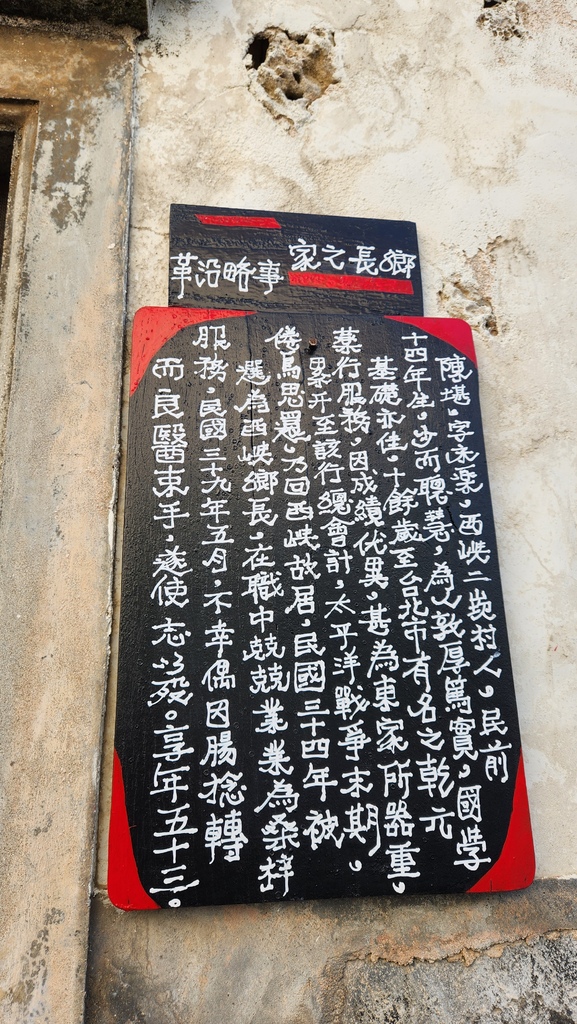 鄉長之家
事略沿革
陳堪，字永，西嶼二崁村人。民前
十四年生。少而聰慧，為人敦厚篤實，國學
基礎亦佳。十餘歲至台北市有名之乾元
藥行服務，因成績优異，甚為東家所器重。
累升至該行總會計，太平洋戰爭末期。
倦鳥思還，乃回西嶼故居，民國三十四年被
選為西嶼鄉長，在職中兢兢業業為桑梓
服務，民國三十九年五月，不幸偶因腸捻轉
而良醫束手，遂使志以歿。享年五十三。